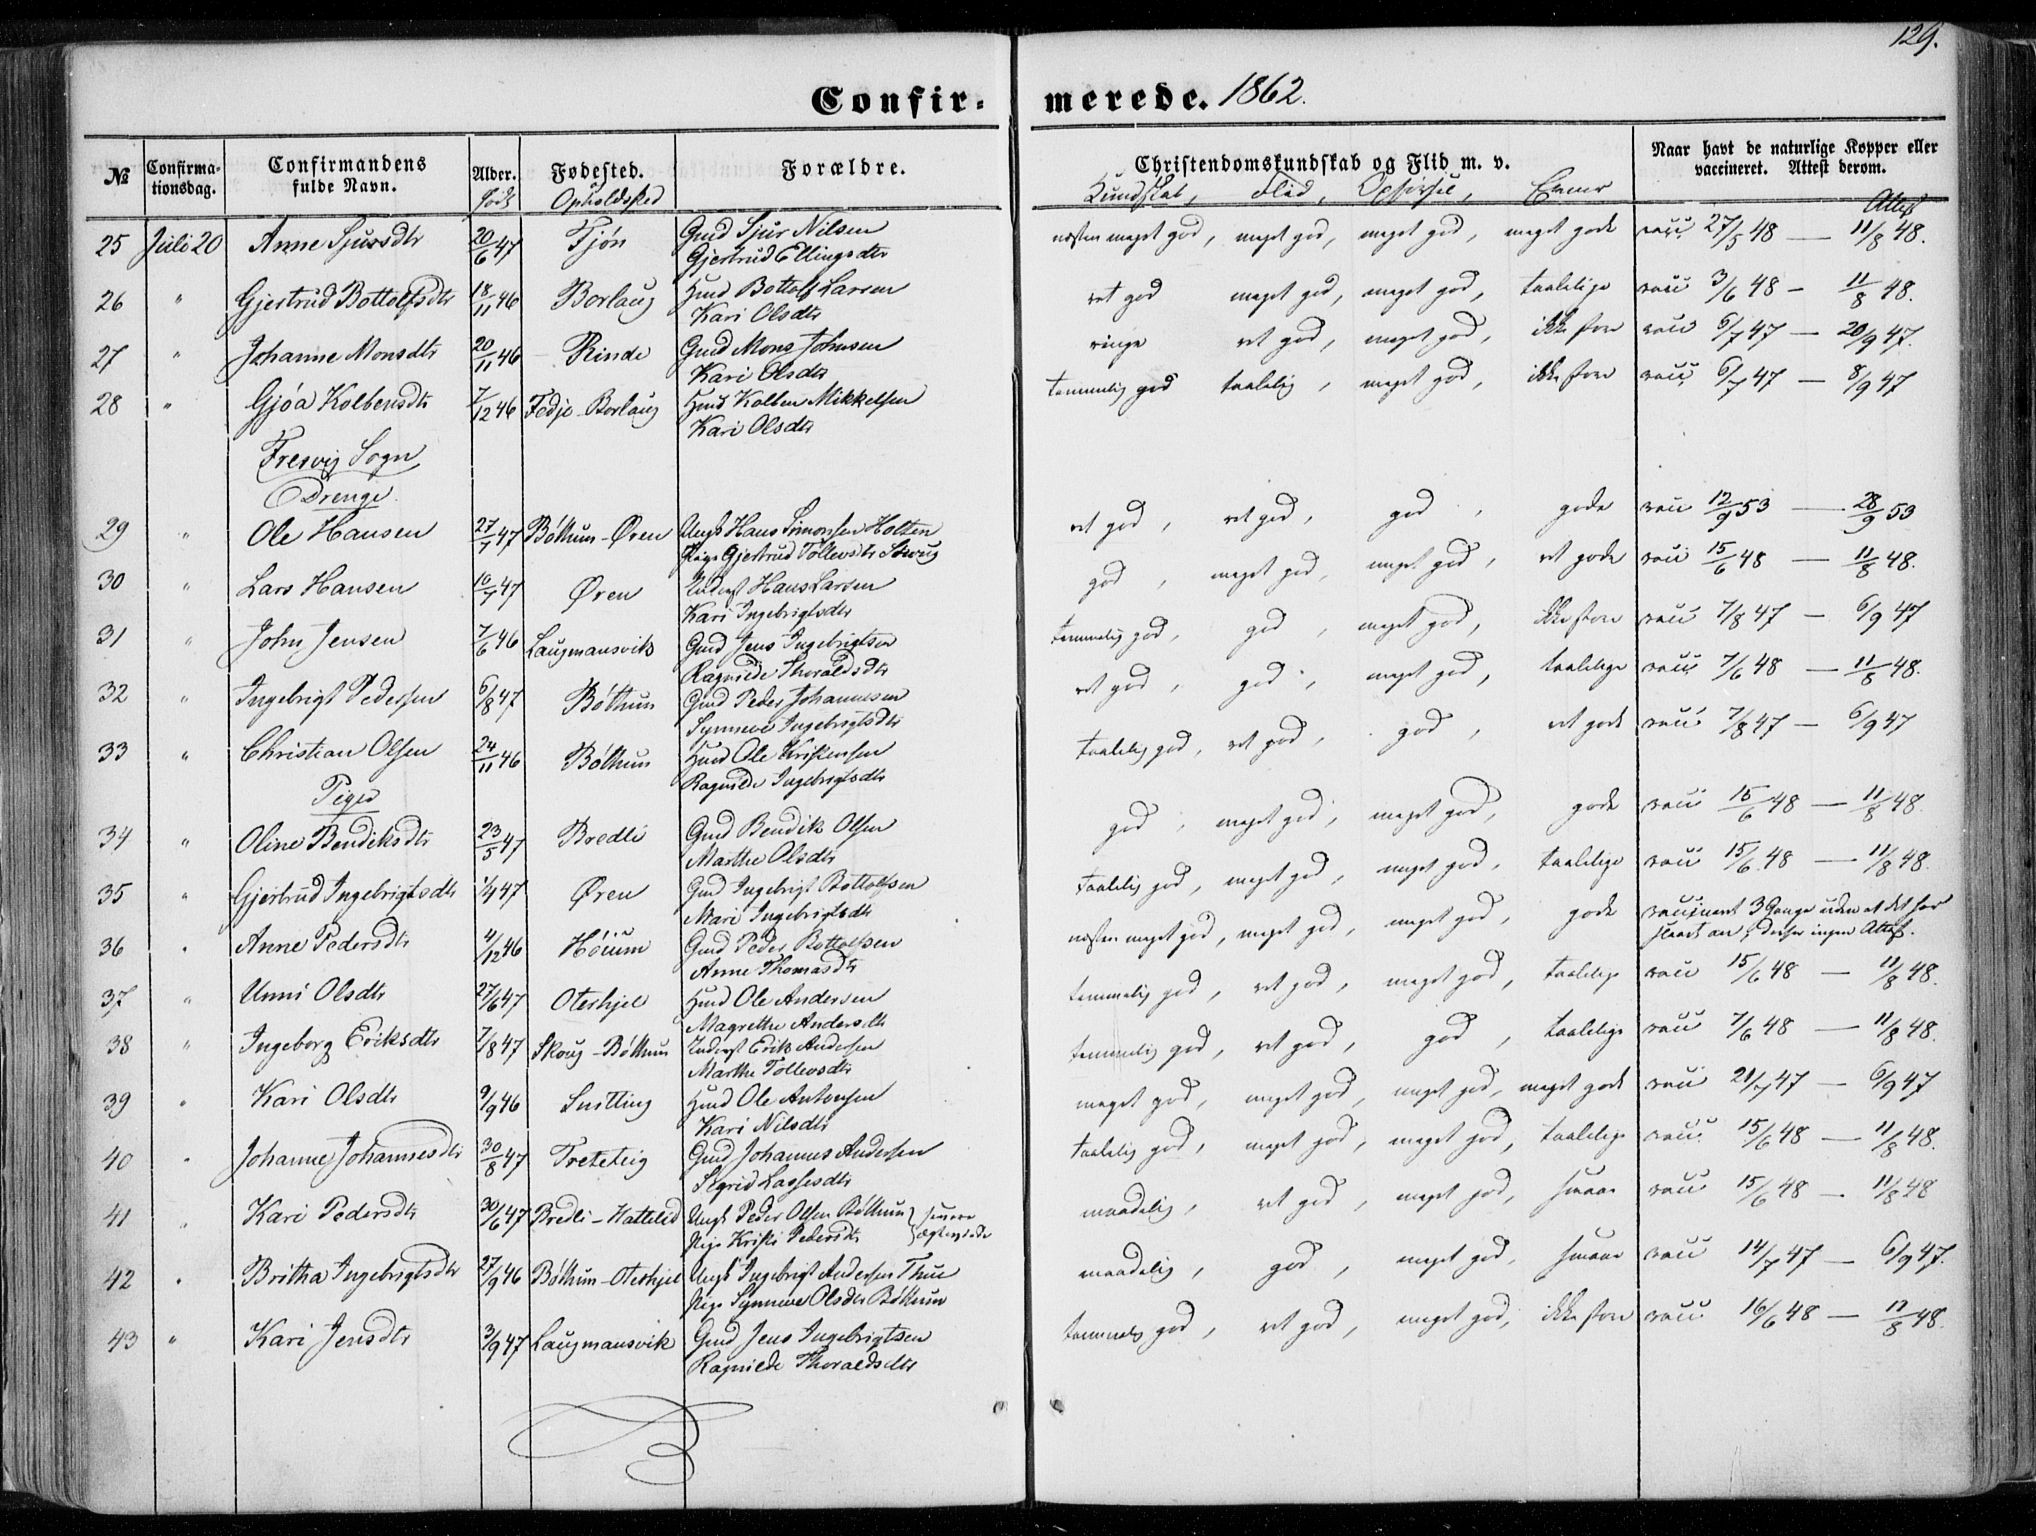 129.
Confir- merede. 1862.
№ Confirma-tionsdag. Confirmandens fulde Navn. Alder. Fødested. Forældre. Christendomskundskab og Flid m. v. Naar havt de naturlige Kopper eller vaccineret. Attest derom.
født Opholdsted Kundskab, Flid, Opførsel, Evner Attest
25 Juli 20 Anne Sjursdtr 20/6 47 Tjøn Gmd Sjur Nilsen næsten meget god, meget god, meget god, meget gode vacc. 27/5 48 — 11/8 48.
Gjertrud Ellingsdtr
26 " Gjertrud Bottolfsdtr 18/11 46 Borlaug Hmd Bottolf Larsen ret god meget god, meget god, taalelige vacc 3/6 48 — 11/8 48.
Kari Olsdtr
27 " Johanne Monsdtr 20/11 46 Rinde Gmd Mons Johnsen ringe ret god, meget god, ikke store vacc 6/7 47 — 20/9 47.
Kari Olsdtr
28 " Gjøa Kolbensdtr 7/12 46 Fedje-Borlaug Hmd Kolben Mikkelsen temmelig god taalelig, meget god, ikke store vacc 6/7 47 — 8/9 47
Kari Olsdtr
Fresvig Sogn
Drenge.
29 " Ole Hansen 27/7 47 Bøthum-Øren Ungk Hans Simonsen Holten ret god, ret god, god, gode vacc 12/9 53 — 28/9 53
Pige Gjertrud Tollevsdtr Skoug
30 " Lars Hansen 10/7 47 Øren Inderst Hans Larsen god, meget god, meget god, ret gode vacc 15/6 48 — 11/8 48.
Kari Ingebrigtsdtr
31 " John Jensen 7/6 46 Laugmansvik Gmd Jens Ingebrigtsen temmelig god, god, meget god, ikke store vacc 7/8 47 — 6/9 47
Ragnilde Thoraldsdtr
32 " Ingebrigt Pedersen 6/8 47 Bøthun Gmd Peder Johannesen ret god, god, meget god, taalelige vacc 7/6 48 — 11/8 48.
Synneve Ingebrigtsdtr
33 " Christian Olsen 24/11 46 Bøthun Hmd Ole Kristensen taalelig god, ret god, god, ret gode vacc 7/8 47 — 6/9 47
Ragnilde Ingebrigtsdtr
Piger
34 " Oline Bendiksdtr 23/5 47 Bredli Gmd Bendik Olsen god, meget god, meget god, gode vacc 15/6 48 — 11/8 48.
Marthe Olsdtr
35 " Gjertrud Ingebrigtsdtr 1/1 47 Øren Gmd Ingebrigt Bottolfsen taalelig god, meget god, meget god, taalelige vacc 15/6 48 — 11/8 48.
Mari Ingebrigtsdtr
36 " Anne Pedersdtr 4/12 46 Høium Gmd Peder Bottolfsen næsten meget god, meget god, meget god, gode vaccineret 3 Gange uden at det har slaaet an, derfor ingen Attest.
Anne Thomasdtr
37 " Unni Olsdtr 27/6 47 Oterhjel Hmd Ole Andersen temmelig god, ret god, meget god, taalelige vacc 15/6 48 — 11/8 48.
Magrethe Andersdtr
38 " Ingeborg Eriksdtr 7/8 47 Skoug-Bøthun Inderst Erik Andersen temmelig god, ret god, god, taalelige vacc 7/6 48 — 11/8 48.
Marthe Tollevsdtr
39 " Kari Olsdtr 9/9 46 Snilling Hmd Ole Antonsen meget god, meget god, meget god, meget gode vacc 21/7 47 — 6/9 47
Kari Nilsdtr
40 " Johanne Johannesdtr 30/8 47 Treteteig Gmd Johannes Andersen taalelig god, meget god, meget god, taalelige vacc 15/6 48 — 11/8 48.
Sigrid Lassesdtr
41 " Kari Pedersdtr 30/6 47 Bredli-Hatteled Ungk Peder Olsen Bøthun senere maadelig, ret god, meget god, smaae vacc 15/6 48 — 11/8 48
Pige Kristi Pedersdtr ægteviede
42 " Britha Ingebrigtsdtr 27/9 46 Bøthun-Oterhjel Ungk Ingebrigt Andersen Thue maadelig, god, meget god, smaae vacc 14/7 47 — 6/9 47.
Pige Synneve Olsdtr Bøthun
43 " Kari Jensdtr 3/9 47 Laugmansvik Gmd Jens Ingebrigtsen temmelig god, ret god, meget god, ikke store vacc 16/6 48 — 12/8 48.
Ragnilde Thoraldsdtr